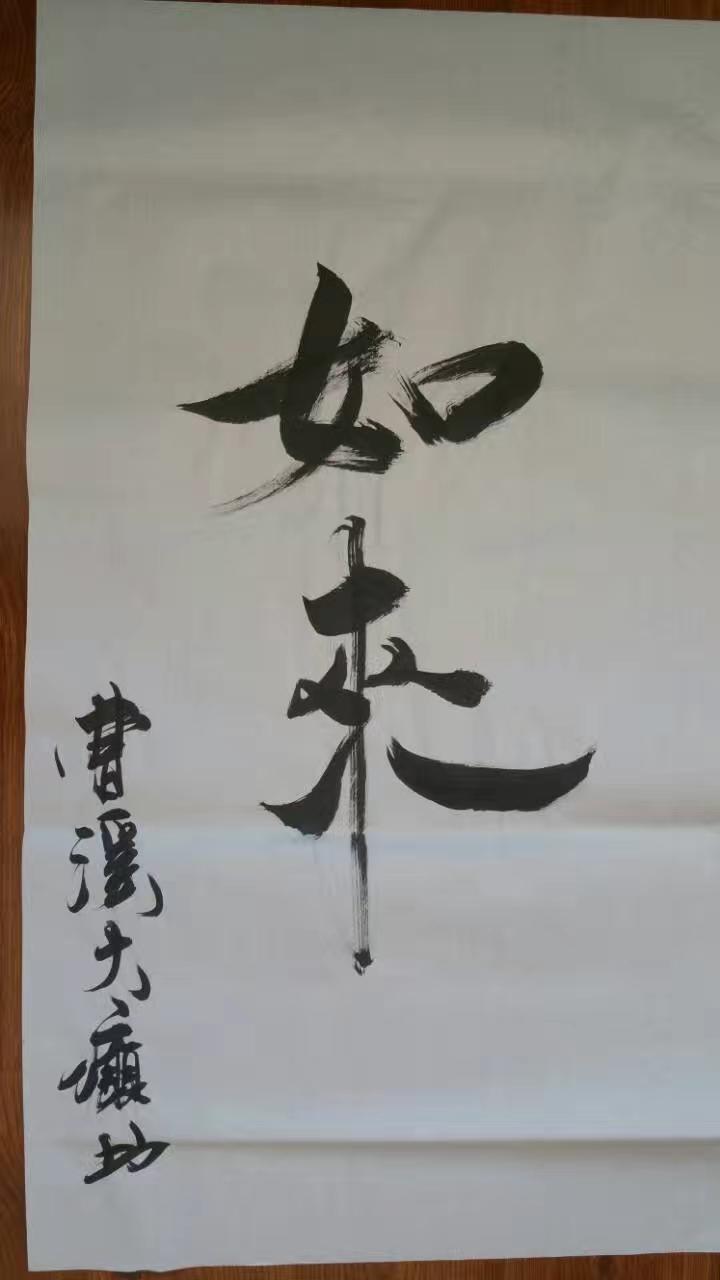 如來
曹溪大癲功